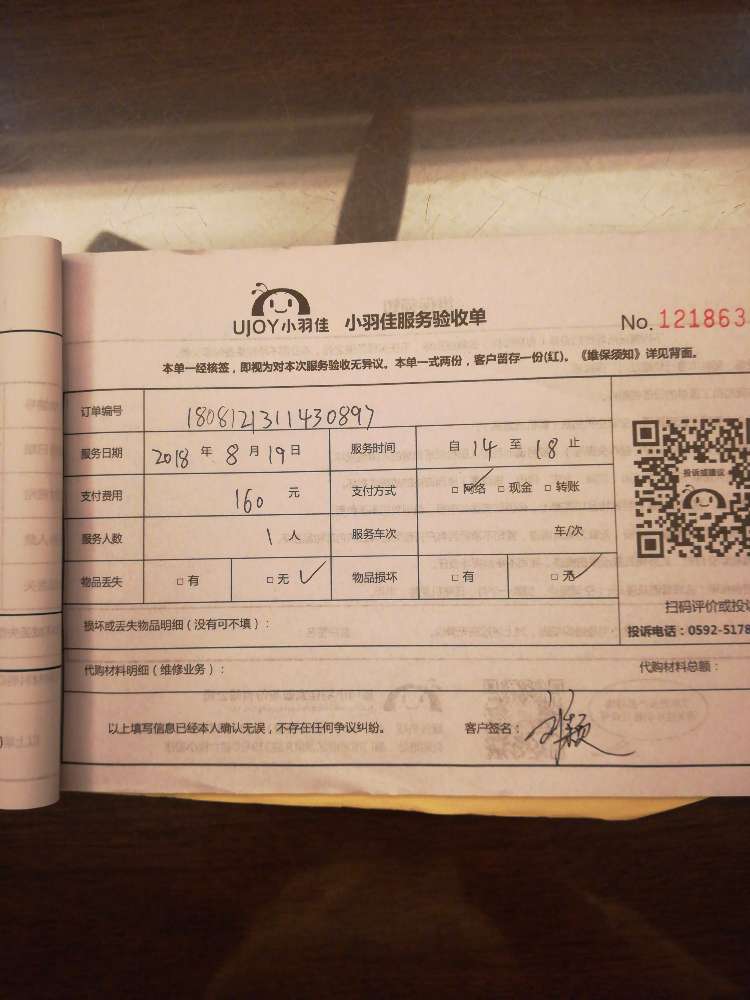 UJOY小羽佳 小羽佳服务验收单 No. 121863
本单一经核签，即视为对本次服务验收无异议。本单一式两份，客户留存一份(红)。《维保须知》详见背面。
订单编号 180812131143089​7
服务日期 2018 年 8 月 19 日 服务时间 自 14 至 18 止
支付费用 160 元 支付方式 □ 网络 □ 现金 □ 转账
服务人数 1 人 服务车次 车/次
物品丢失 □ 有 □ 无 ✓ 物品损坏 □ 有 □ 无 ✓
投诉或建议
扫码评价或投诉
损坏或丢失物品明细（没有可不填）：
投诉电话：0592-5178
代购材料明细（维修业务）： 代购材料总额：
以上填写信息已经本人确认无误，不存在任何争议纠纷。 客户签名：刘颖